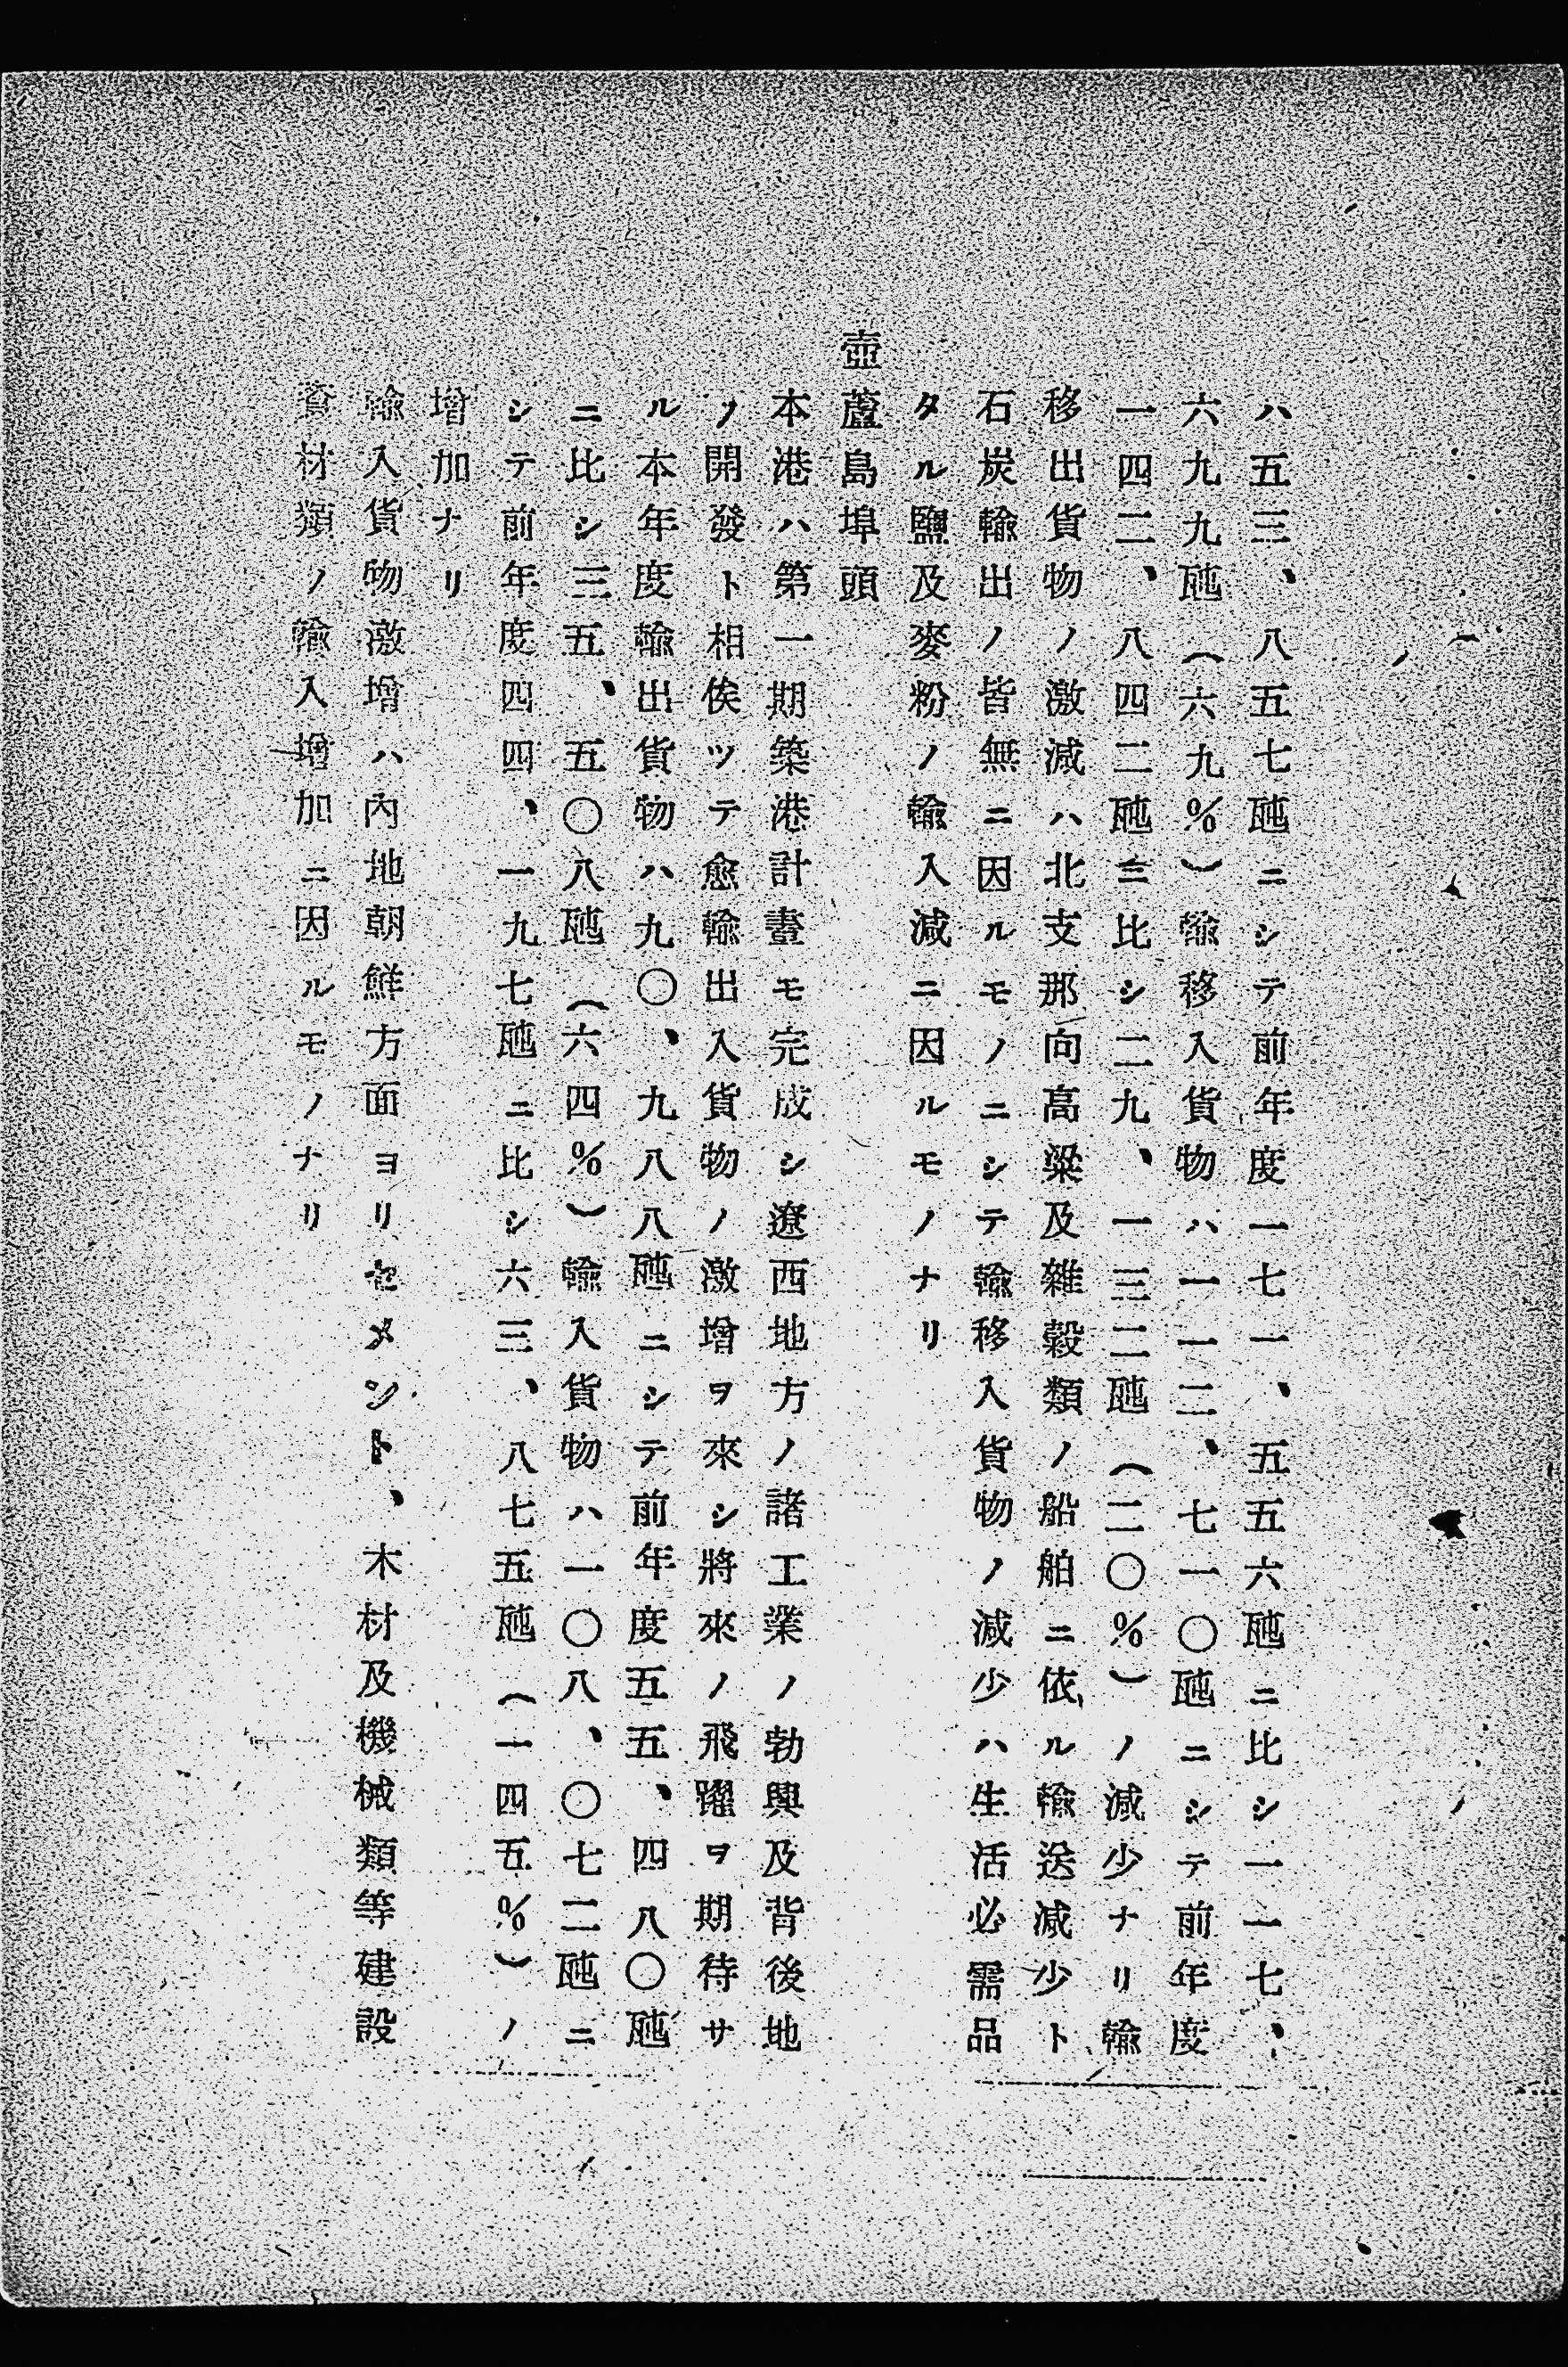 ハ五三、八五七瓲ニシテ前年度一七一、五五六瓲ニ比シ一一七、
六九九瓲（六九％）輸移入貨物ハ一一二、七一〇瓲ニシテ前年度
一四二、八四二瓲ニ比シ二九、一三二瓲（二〇％）ノ減少ナリ輸
移出貨物ノ激減ハ北支那向高粱及雜穀類ノ船舶ニ依ル輸送減少ト
石炭輸出ノ皆無ニ因ルモノニシテ輸移入貨物ノ減少ハ生活必需品
タル鹽及麥粉ノ輸入減ニ因ルモノナリ
壺蘆島埠頭
本港ハ第一期築港計畫モ完成シ遼西地方ノ諸工業ノ勃興及背後地
ノ開發ト相俟ツテ愈輸出入貨物ノ激增ヲ來シ將來ノ飛躍ヲ期待サ
ル本年度輸出貨物ハ九〇、九八八瓲ニシテ前年度五五、四八〇瓲
ニ比シ三五、五〇八瓲（六四％）輸入貨物ハ一〇八、〇七二瓲ニ
シテ前年度四四、一九七瓲ニ比シ六三、八七五瓲（一四五％）ノ
增加ナリ
輸入貨物激增ハ內地朝鮮方面ヨリセメント、木材及機械類等建設
資材類ノ輸入增加ニ因ルモノナリ